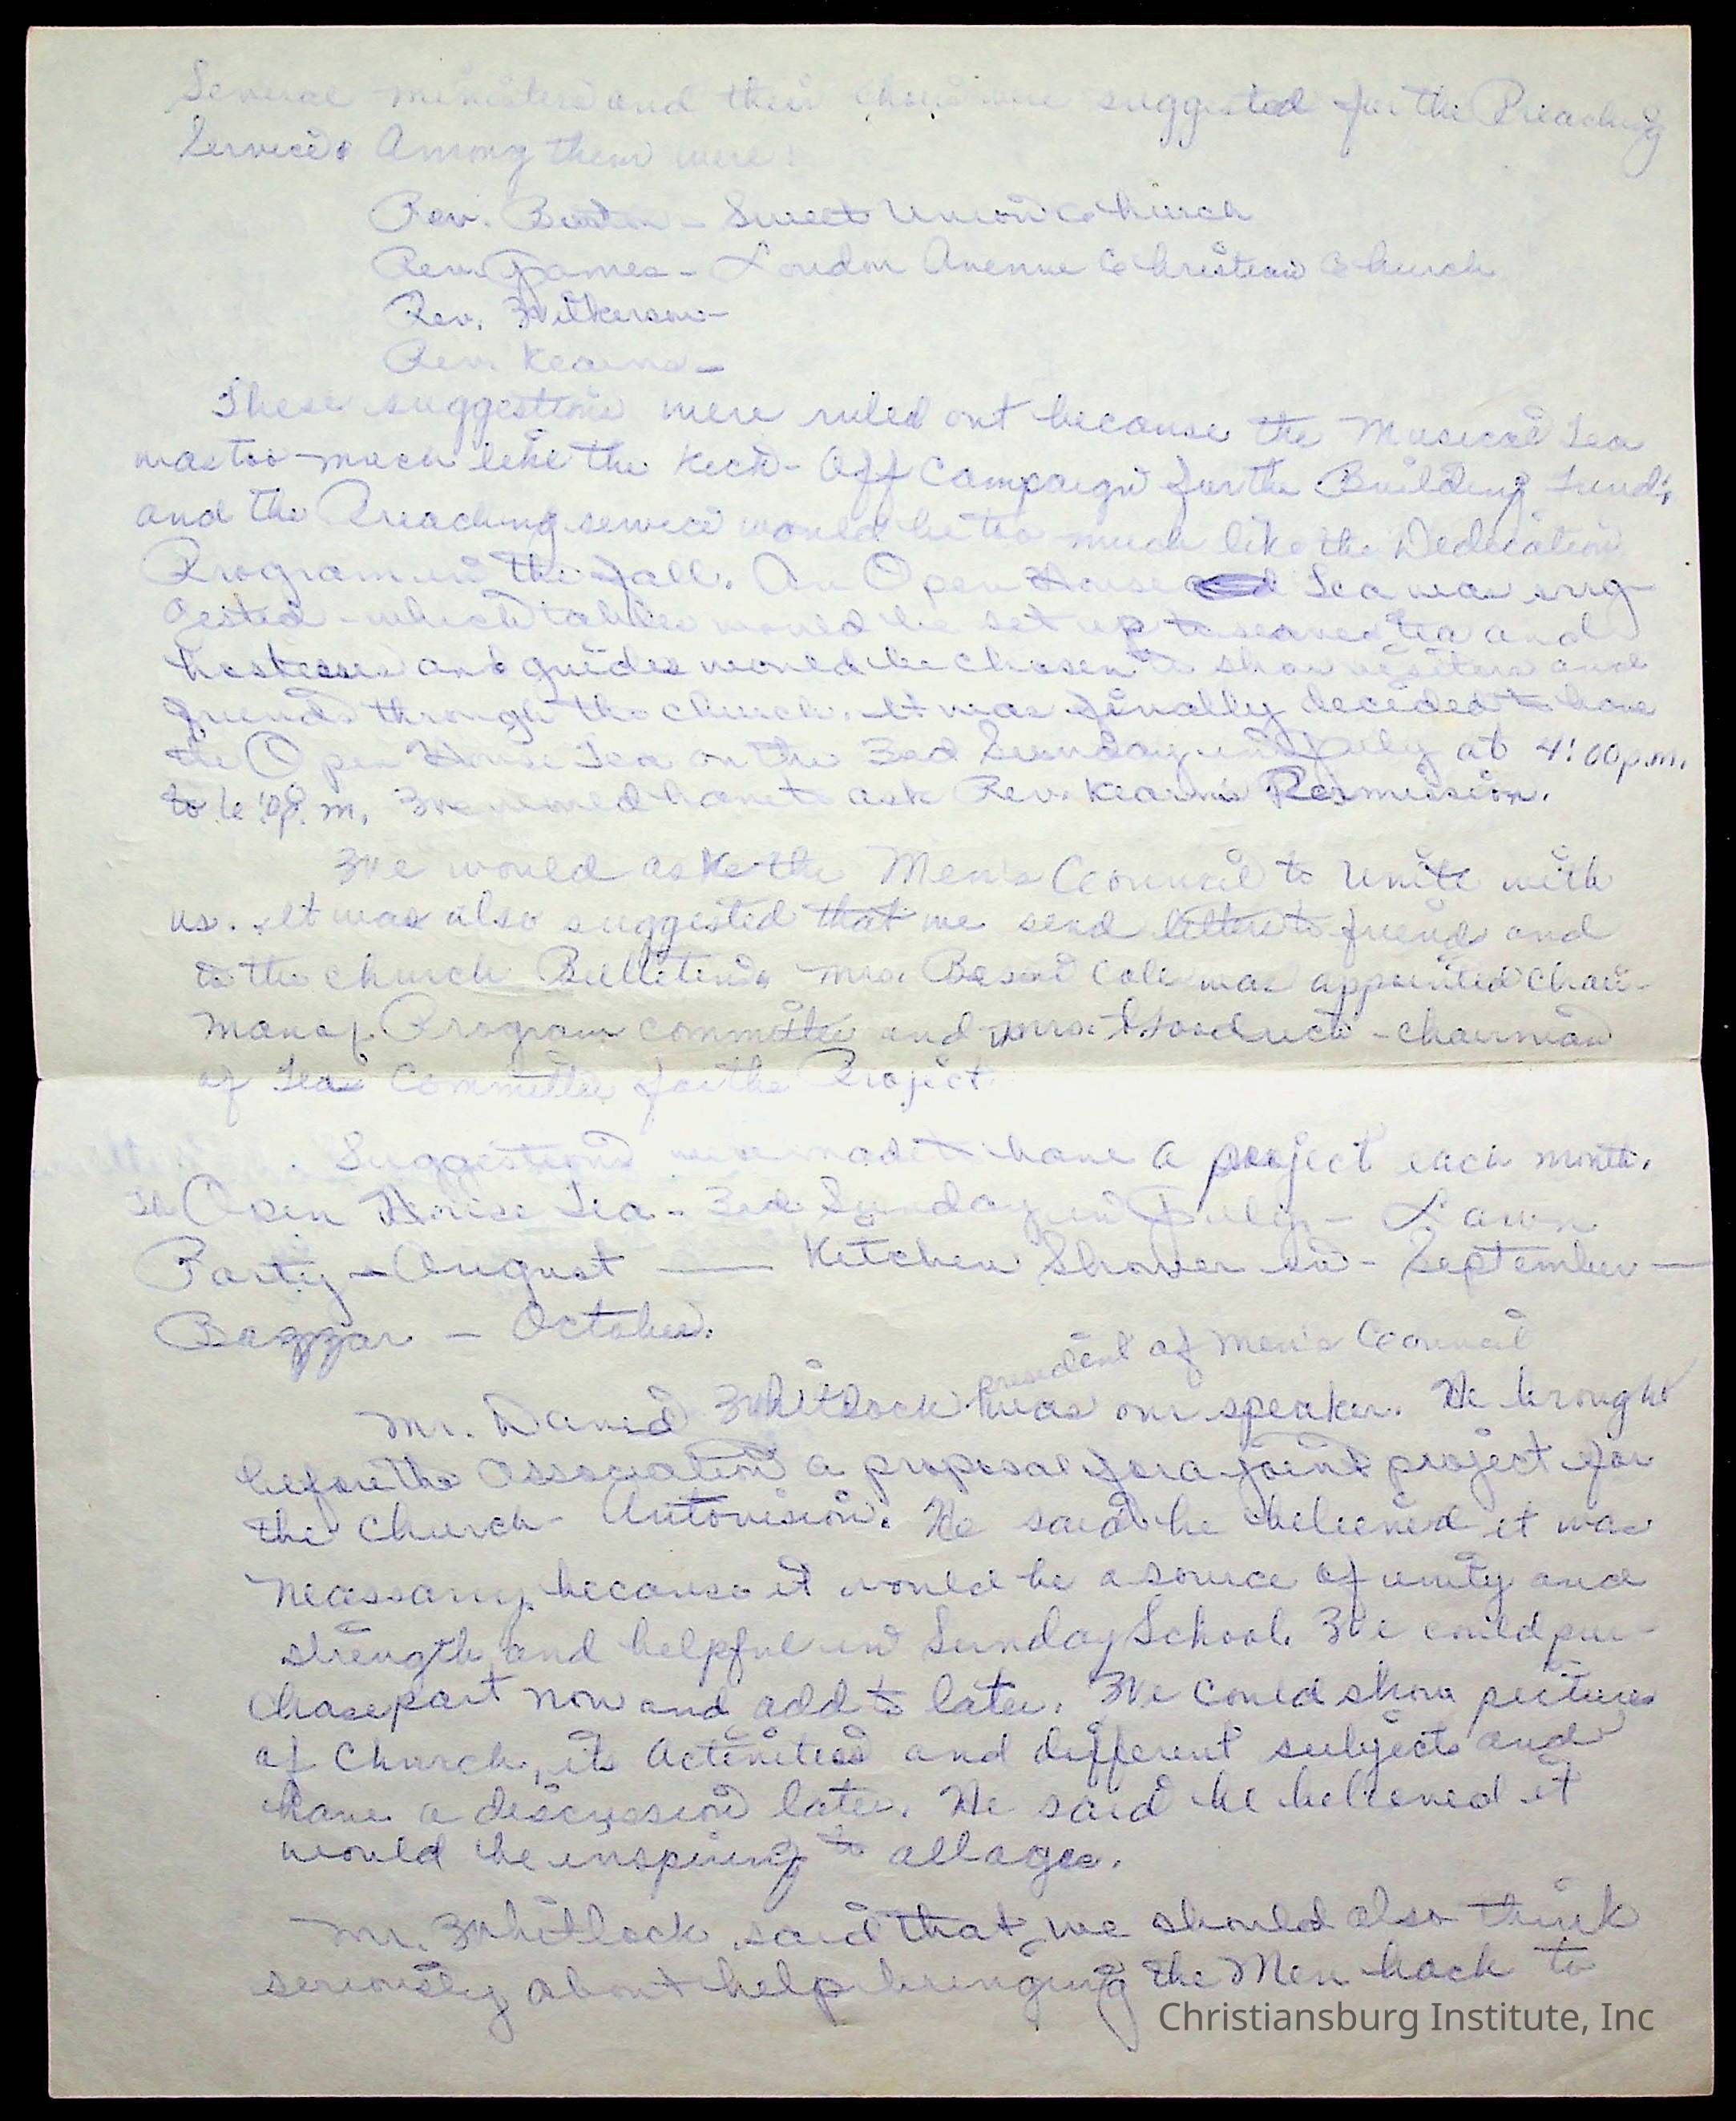 Several ministers and their choirs were suggested for the Preaching
Service. Among them were:
Rev. Burton - Sweet Union Church
Rev. James - Loudon Avenue Christian Church
Rev. Wilkerson -
Rev. Kearns -
These suggestions were ruled out because the Musical Tea
was too much like the Kick-Off Campaign for the Building Fund;
and the Preaching service would be too much like the Dedication
Program in the fall. An Open House Tea was sug-
gested - which tables would be set up to serve tea and
hostesses and guides would be chosen to show visitors and
friends through the church. It was finally decided to have
the Open House Tea on the 3rd Sunday in July at 4:00 p.m.
to 6:00 P.m. We would have to ask Rev. Kearns Permission.
We would ask the Men's Council to Unite with
us. It was also suggested that we send letters to friends and
to the church Bulletins. Mrs. Cole was appointed Chair-
man of Program committee and Mrs. - chairman
of Tea Committee for the Project.
Suggestions were made to have a project each month.
Open House Tea - 3rd Sunday in July - Lawn
Party - August — Kitchen Shower in - September —
Bazzar - October.
president of Men's Council
Mr. David Whitlock was our speaker. He brought
before the Association a proposal for a joint project for
the Church - Autovision. He said he believed it was
neassary because it would be a source of unity and
strength and helpful in Sunday School. We could pur-
chase part now and add to later. We could show pictures
of Church, its Activities and different subjects and
have a discussion later. He said he believed it
would be inspiring to all ages.
Mr. Whitlock said that we should also think
seriously about help bringing the Men back to
Christiansburg Institute, Inc